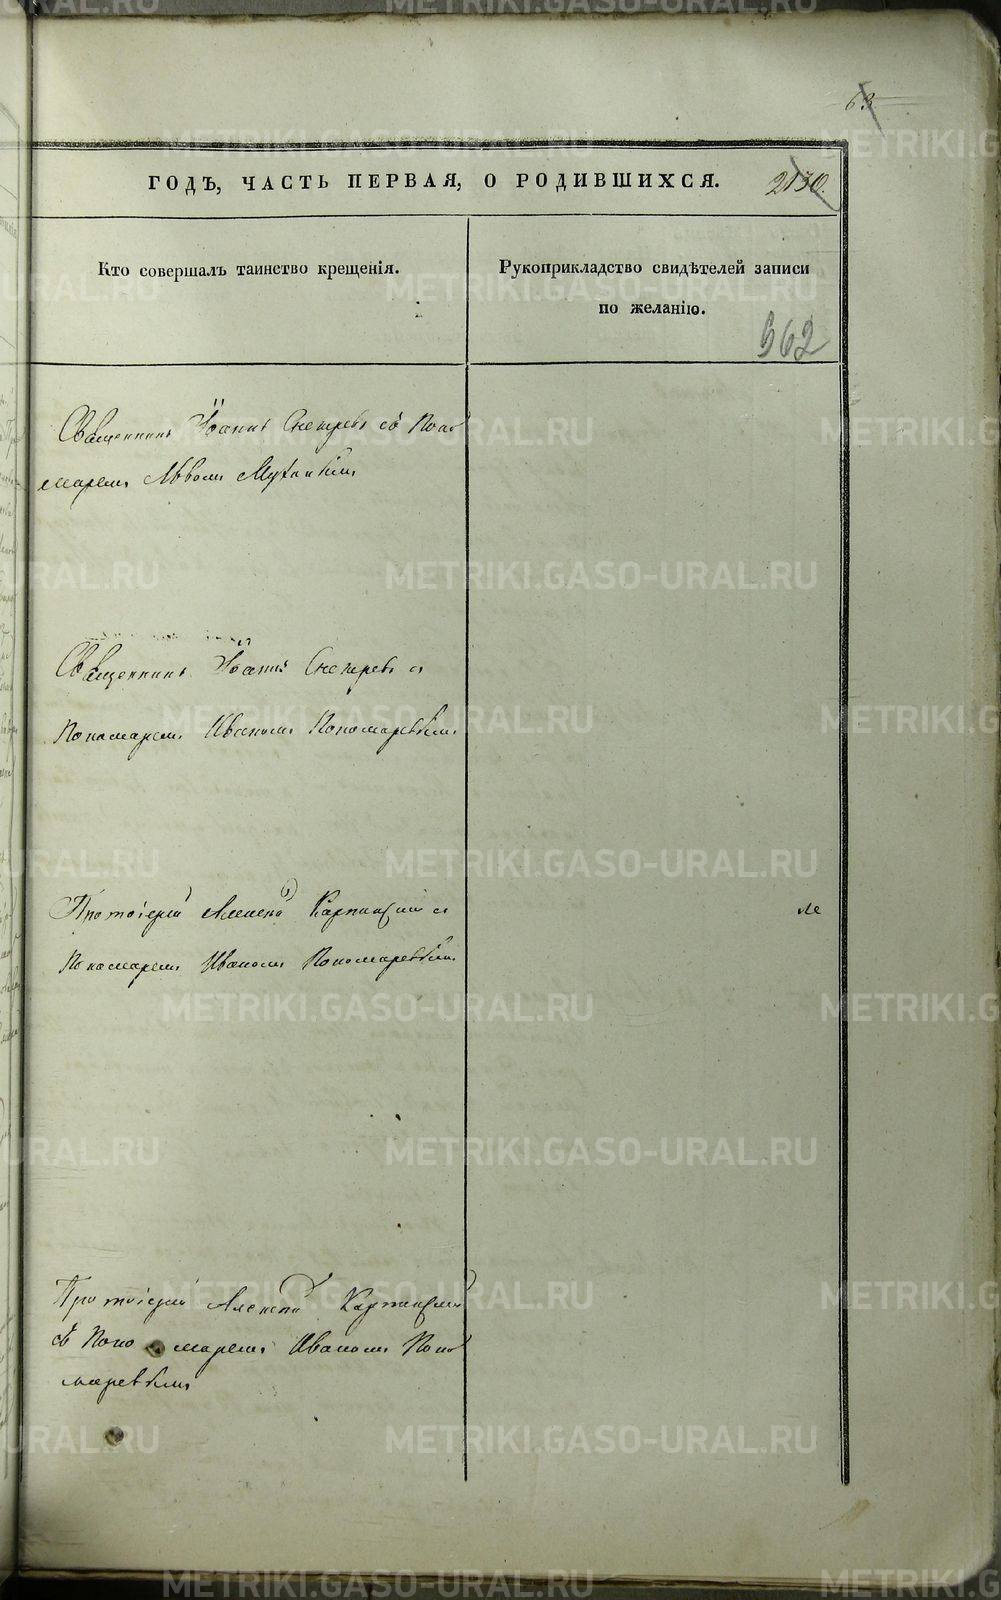 63
ГОДЪ, ЧАСТЬ ПЕРВАЯ, О РОДИВШИХСЯ. 2130.
Кто совершалъ таинство крещенія.
Рукоприкладство свидѣтелей записи
по желанію.
562
Священникъ Іоаннъ Снегиревъ съ Поно
маремъ Львомъ
Священникъ Іоаннъ Снегиревъ съ
Пономаремъ Иваномъ Пономаревымъ
Протоіерей Алексѣй Карпинский съ
Пономаремъ Иваномъ Пономаревымъ
Протоіерей Алексѣй Карпинский
съ Поно маремъ Иваномъ Поно
маревымъ
METRIKI.GASO-URAL.RU